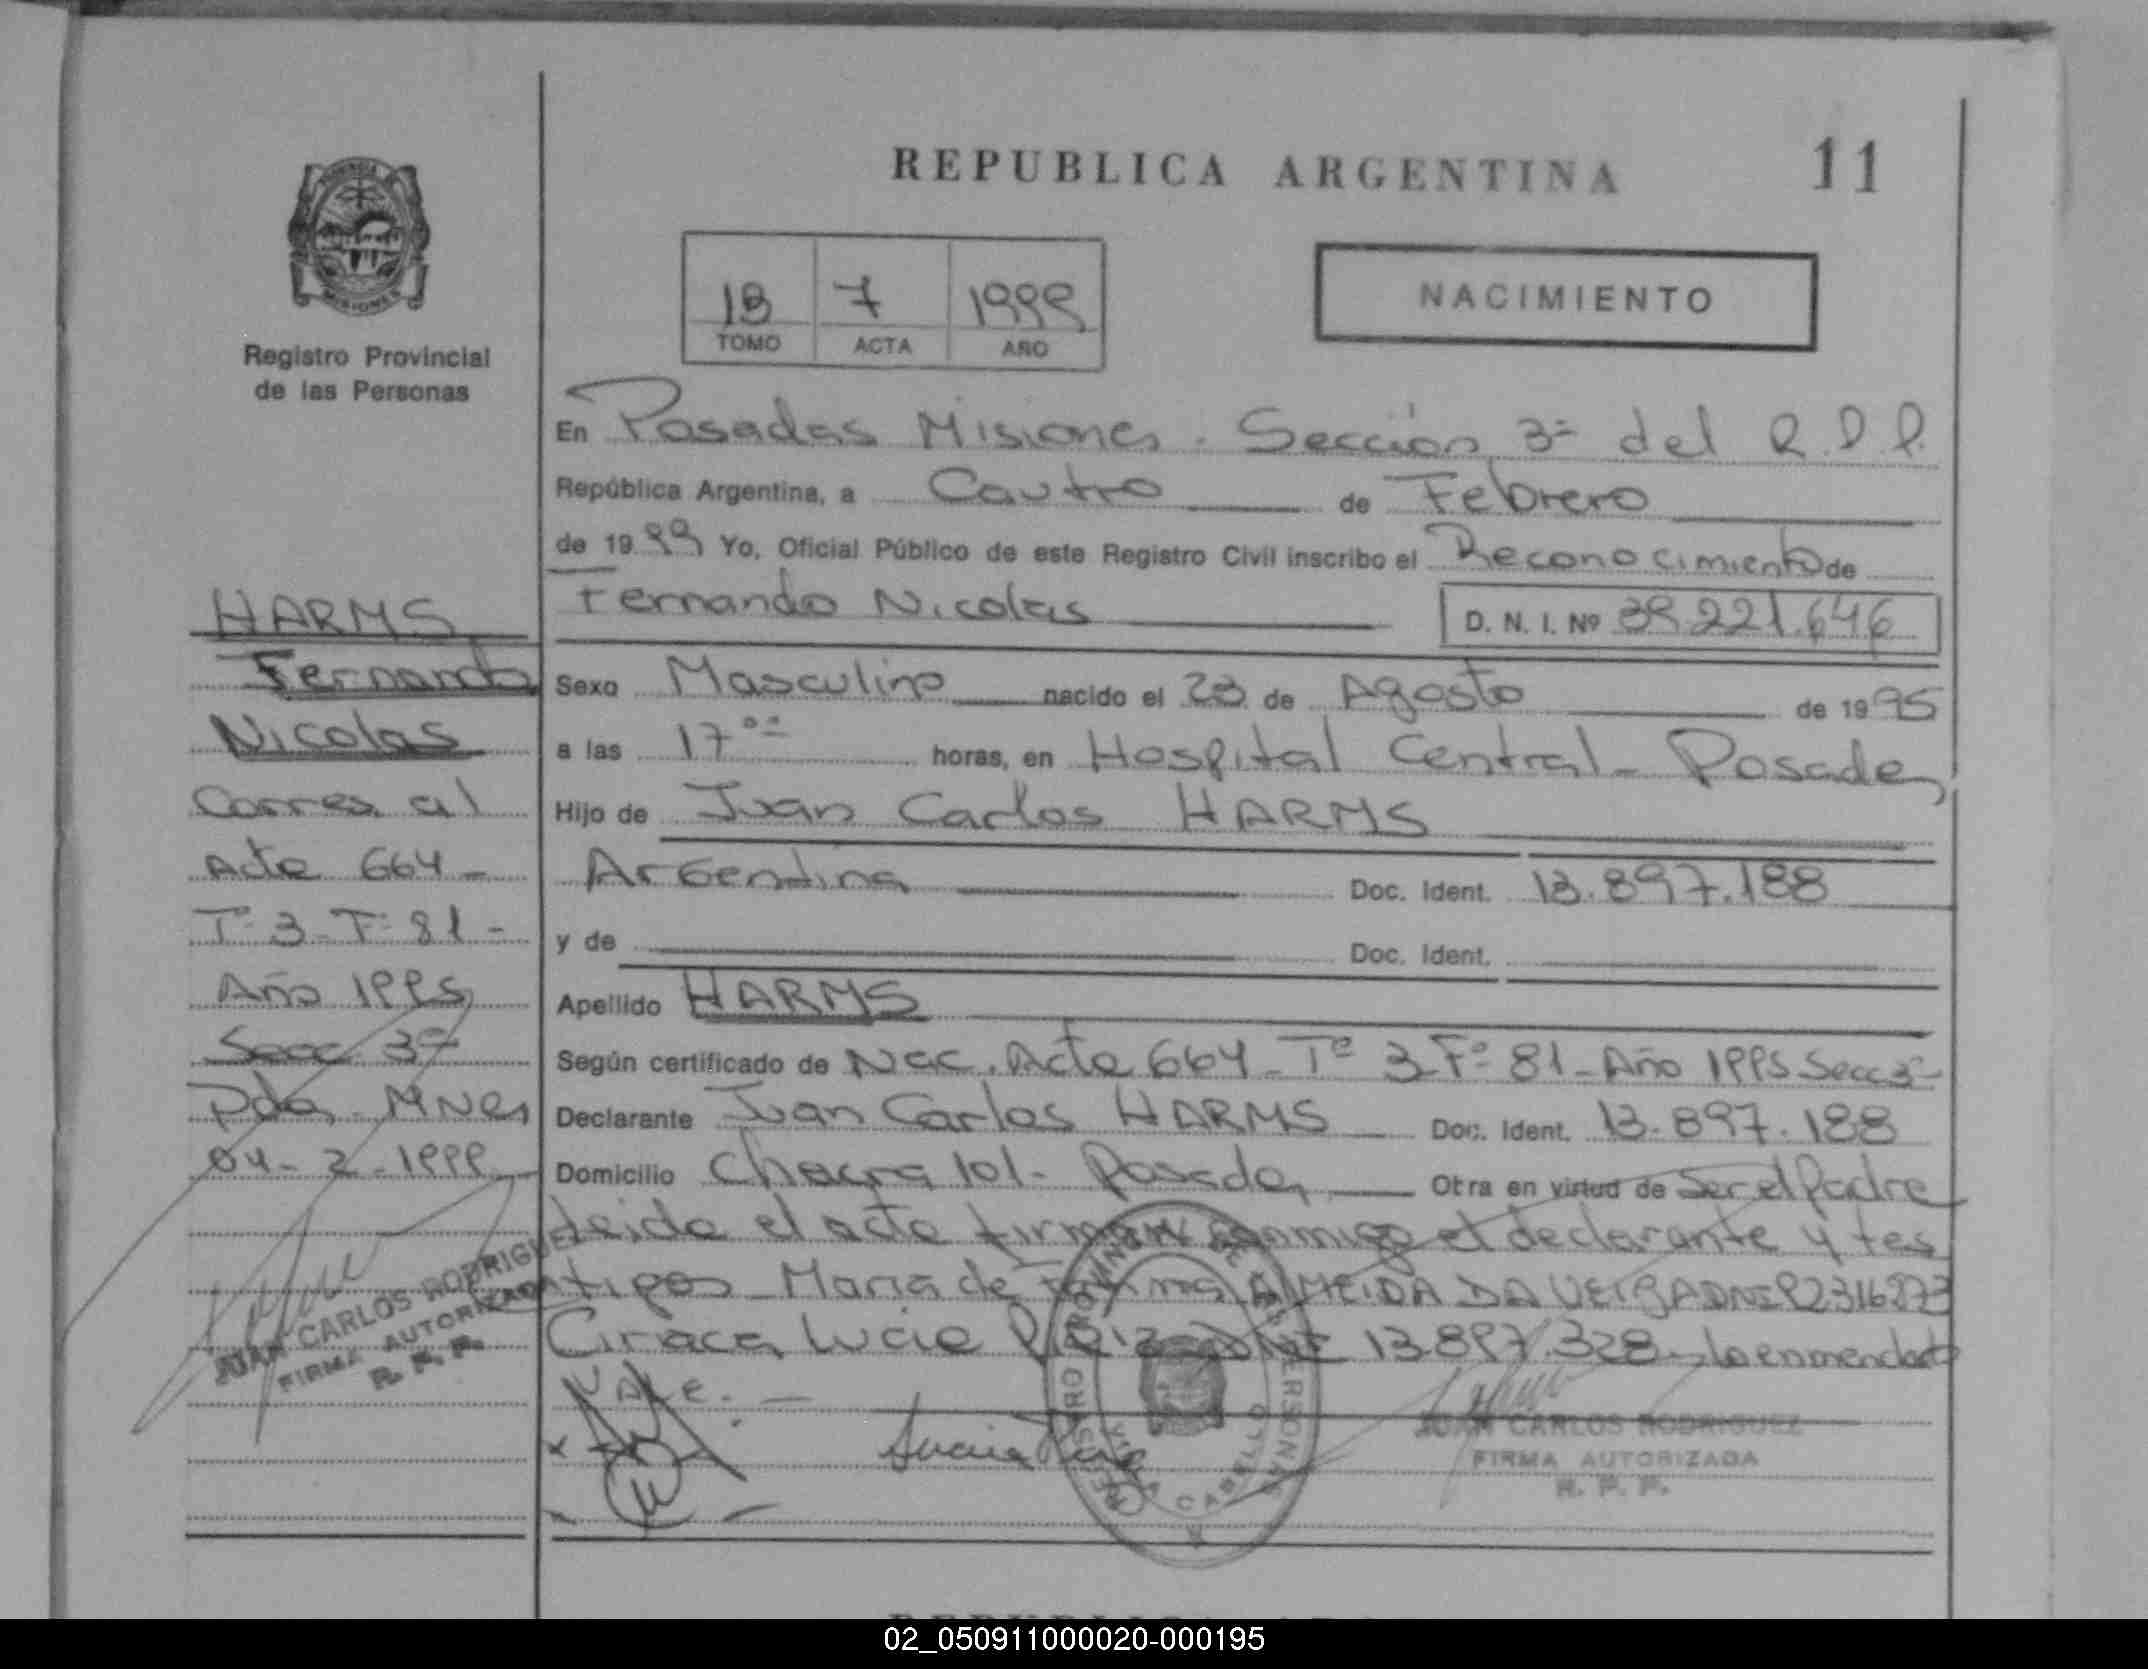 REPUBLICA ARGENTINA 11
PROVINCIA
MISIONES
Registro Provincial
de las Personas
18 7 1999
TOMO ACTA AÑO
NACIMIENTO
En Posadas Misiones. Sección 3ª del R.P.P.
República Argentina, a Cautro de Febrero
de 1999 Yo, Oficial Público de este Registro Civil inscribo el Reconocimiento de
Fernando Nicolas D. N. I. Nº 39.221.646
Sexo Masculino nacido el 23 de Agosto de 1995
a las 17ºº horas, en Hospital Central - Posadas
Hijo de Juan Carlos HARMS
Argentina Doc. Ident. 13.897.188
y de Doc. Ident.
Apellido HARMS
Según certificado de Nac. Acta 664 - Tº 3 - Fº 81 - Año 1995 Secc 3ª
Declarante Juan Carlos HARMS Doc. Ident. 13.897.188
Domicilio Chacra 101 - Posadas Otra en virtud de Ser el Padre
Leida el acta firman conmigo el declarante y tes
tigos Maria de Fatima ALMEIDA DA VEIGA DNI
Ciriaca Lucia DNI 13.897.328 - lo enmendado
VALE. -
HARMS
Fernando
Nicolas
Corres. al
Acta 664 -
Tº 3 - Fº 81 -
Año 1995
Secc 3ª
Pdas. Mnes
04 - 2 - 1999
JUAN CARLOS RODRIGUEZ
FIRMA AUTORIZADA
R. P. P.
REGISTRO PROVINCIAL DE LAS PERSONAS
VILLA CABELLO
JUAN CARLOS RODRIGUEZ
FIRMA AUTORIZADA
R. P. P.
02_050911000020-000195